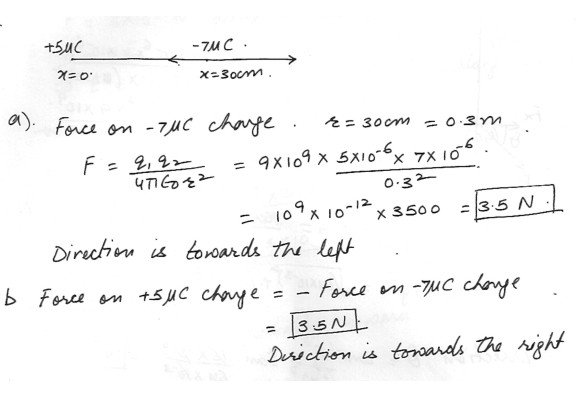 +5μC -7μC.
x=0. x=30cm.
a). Force on -7μC charge. r = 30cm = 0.3m.
F = q1 q2 / 4π∈0 r² = 9×10⁹ × 5×10⁻⁶ × 7×10⁻⁶ / 0.3²
= 10⁹ × 10⁻¹² × 3500 = 3.5 N.
Direction is towards the left.
b Force on +5μC charge = - Force on -7μC charge.
= 3.5N.
Direction is towards the right